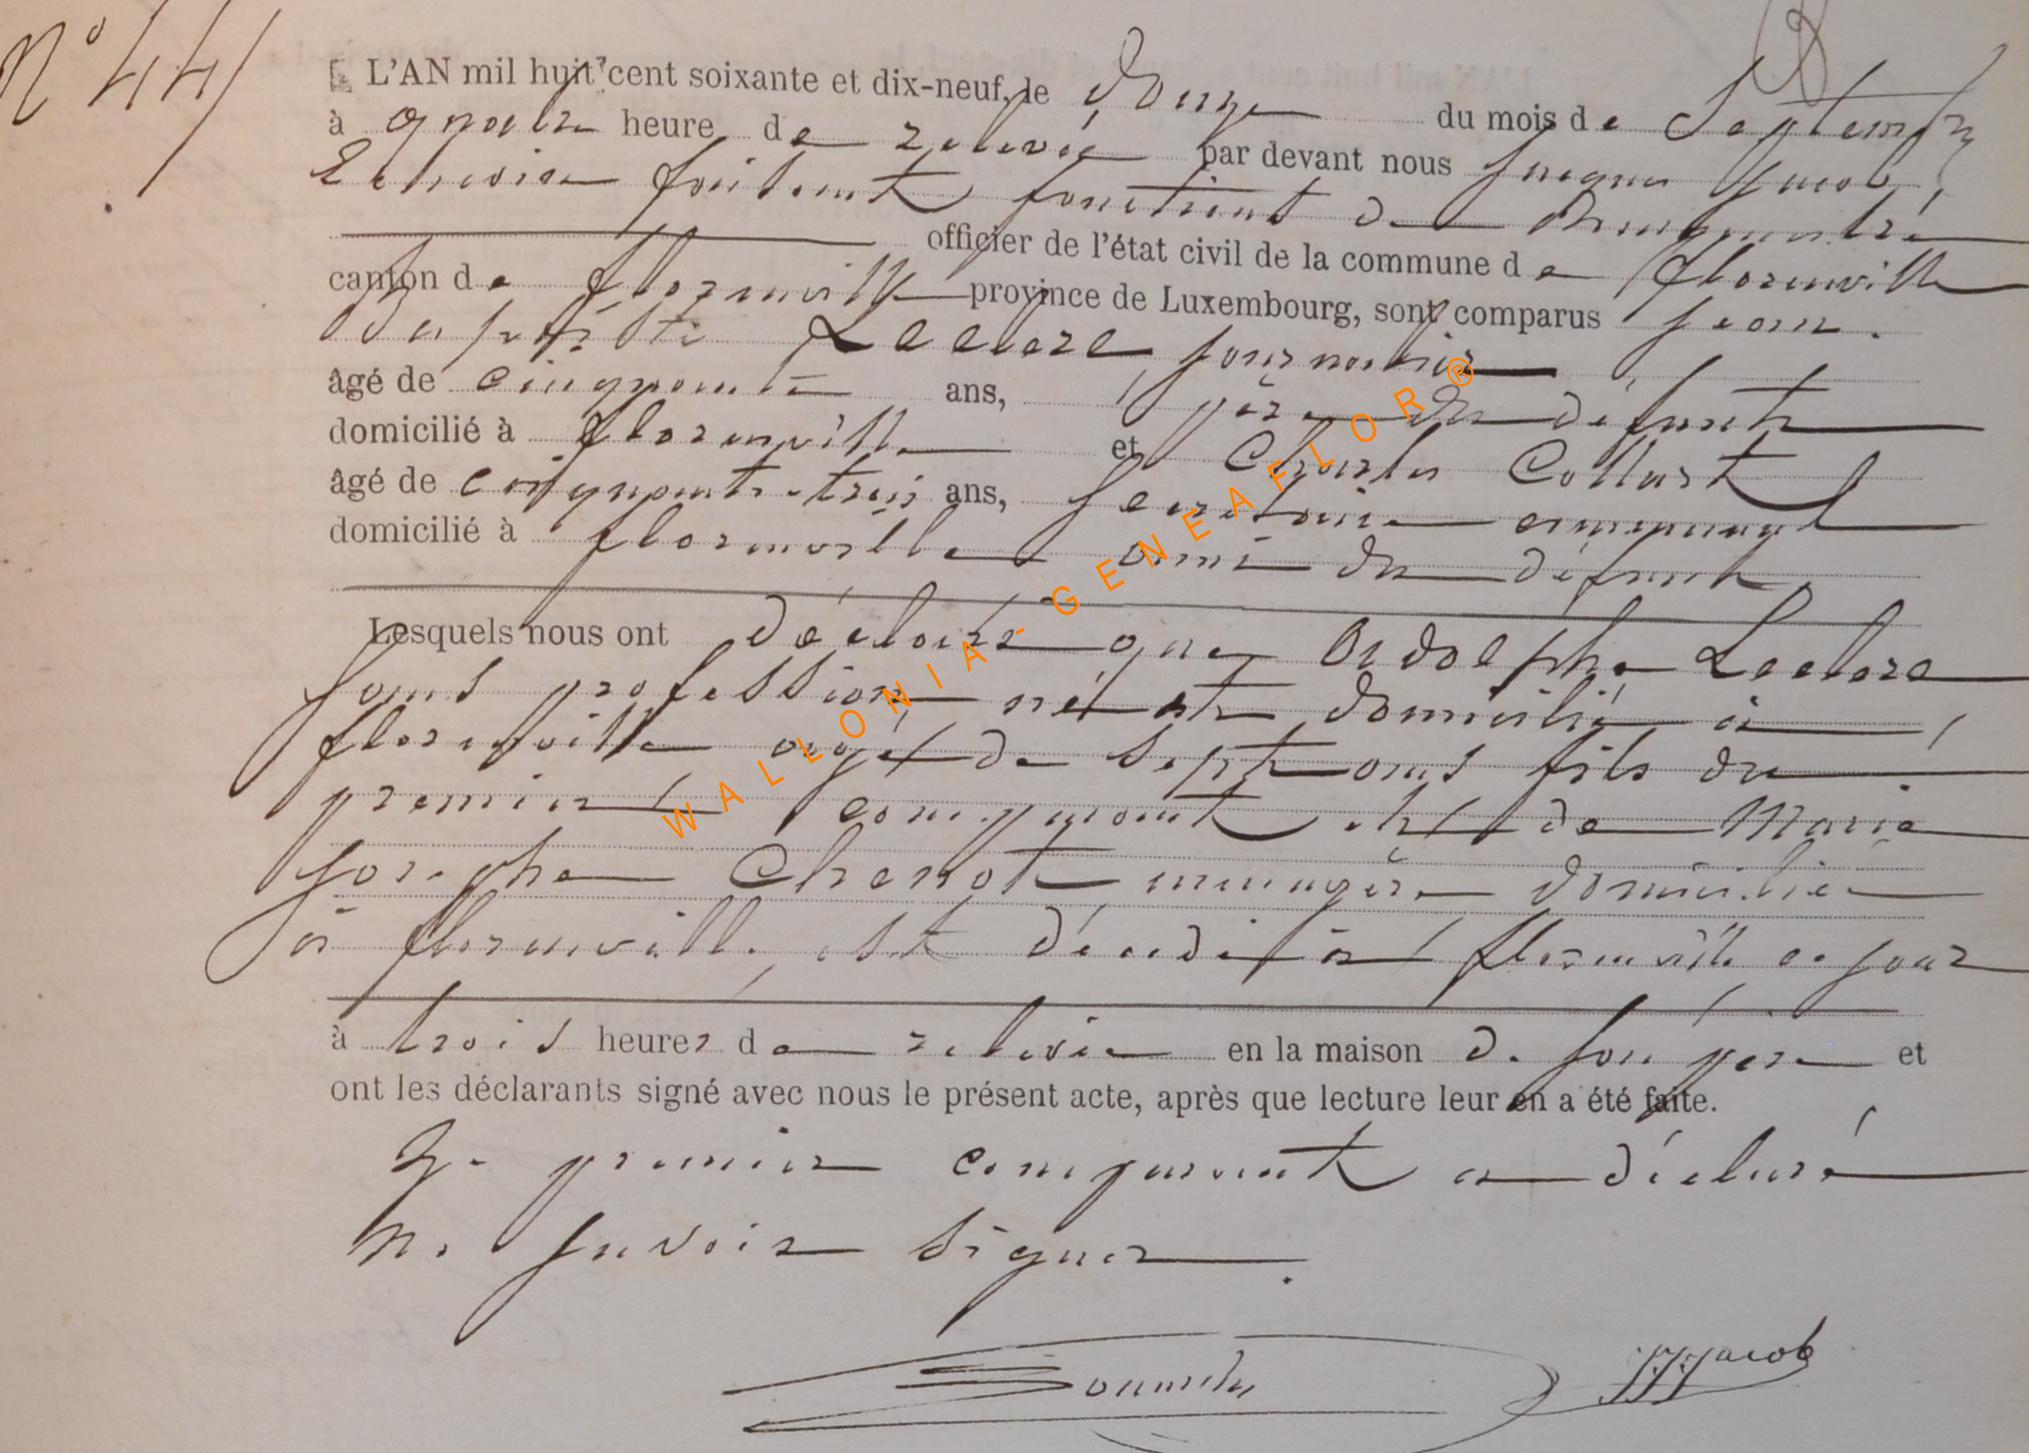 N° 44
L'AN mil huit cent soixante et dix-neuf, le Douze du mois de Septembre
à quatre heure de relevée par devant nous Jacques Jacob,
Echevin faisant fonctions de Bourgmestre
officier de l'état civil de la commune de florenville
canton de florenville province de Luxembourg, sont comparus Jean
Baptiste Leclere, journalier
âgé de cinquante ans, père du défunt
domicilié à florenville et Charles Collart
âgé de cinquante-trois ans, Secrétaire communal
domicilié à florenville ami du défunt,
Lesquels nous ont déclaré que Adolphe Leclere
sans profession né et domicilié à
florenville agé de Sept ans fils du
premier comparant et de Marie
Josephe Chenot ménagère domiciliée
à florenville, est décédé à florenville ce jour
à trois heures de relevée en la maison de son père et
ont les déclarants signé avec nous le présent acte, après que lecture leur en a été faite.
Le premier comparant a déclaré
ne savoir signer.
JJJacob
WALLONIA - GENEAFLOR ®